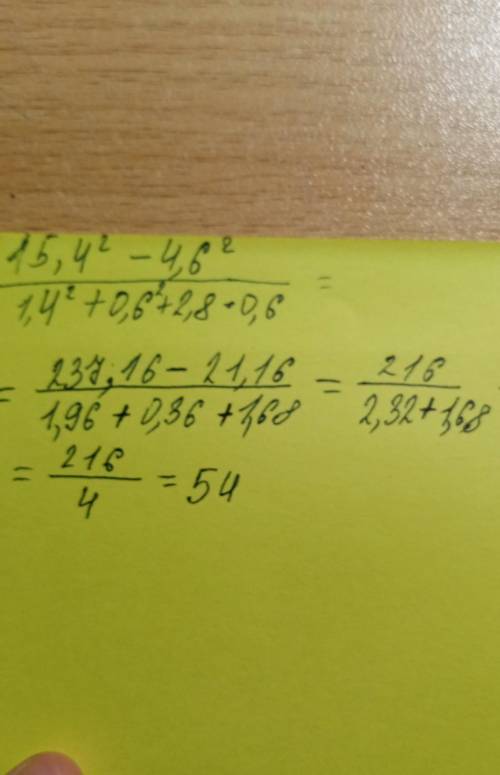 15,4² - 4,6²
1,4² + 0,6² + 2,8 · 0,6 =
= 237,16 - 21,16 = 216
1,96 + 0,36 + 1,68 2,32 + 1,68
= 216 = 54
4